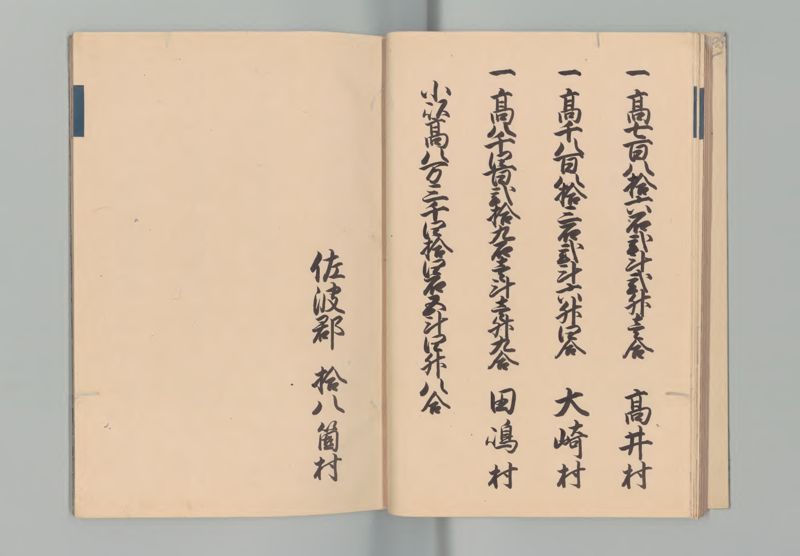 一高七百八拾六石弐斗弐升壱合 高井村
一高千八百八拾三石弐斗六升四合 大崎村
一高八千四百弐拾九石壱斗壱升九合 田嶋村
小以高八万三千四拾四石五斗四升八合
佐波郡 拾八箇村